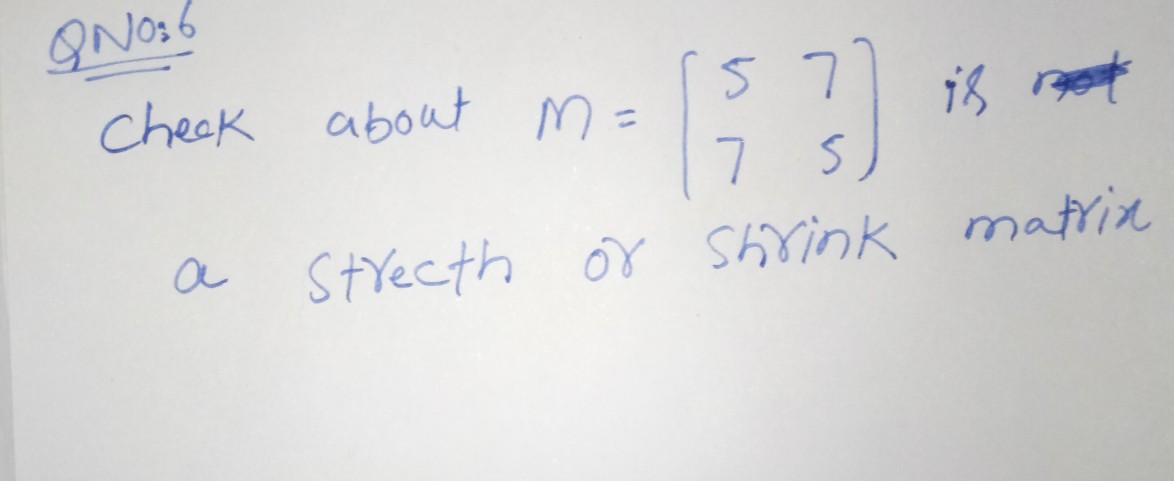 QNO:6
Check about M = [5 7
7 5] is
a strecth or shrink matrix